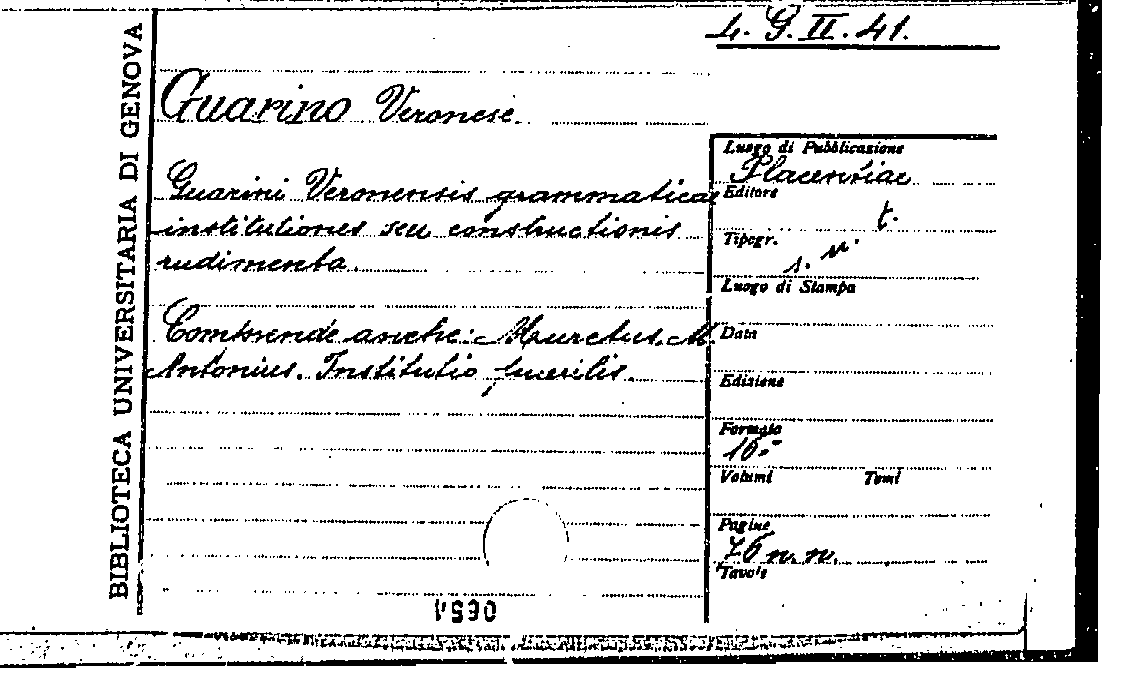 BIBLIOTECA UNIVERSITARIA DI GENOVA
4. G. II. 41.
Guarino Veronese.
Guarini Veronensis grammaticae
institutiones seu constructionis
rudimenta.
Comprende anche: Mureetus. M.
Antonius. Institutio puerilis.
Luogo di Pubblicazione
Placentiae
Editore
t.
Tipogr.
s. n.
Luogo di Stampa
Data
Edizione
Formato
16°
Volumi Tomi
Pagine
76 n. n.
Tavole
0651